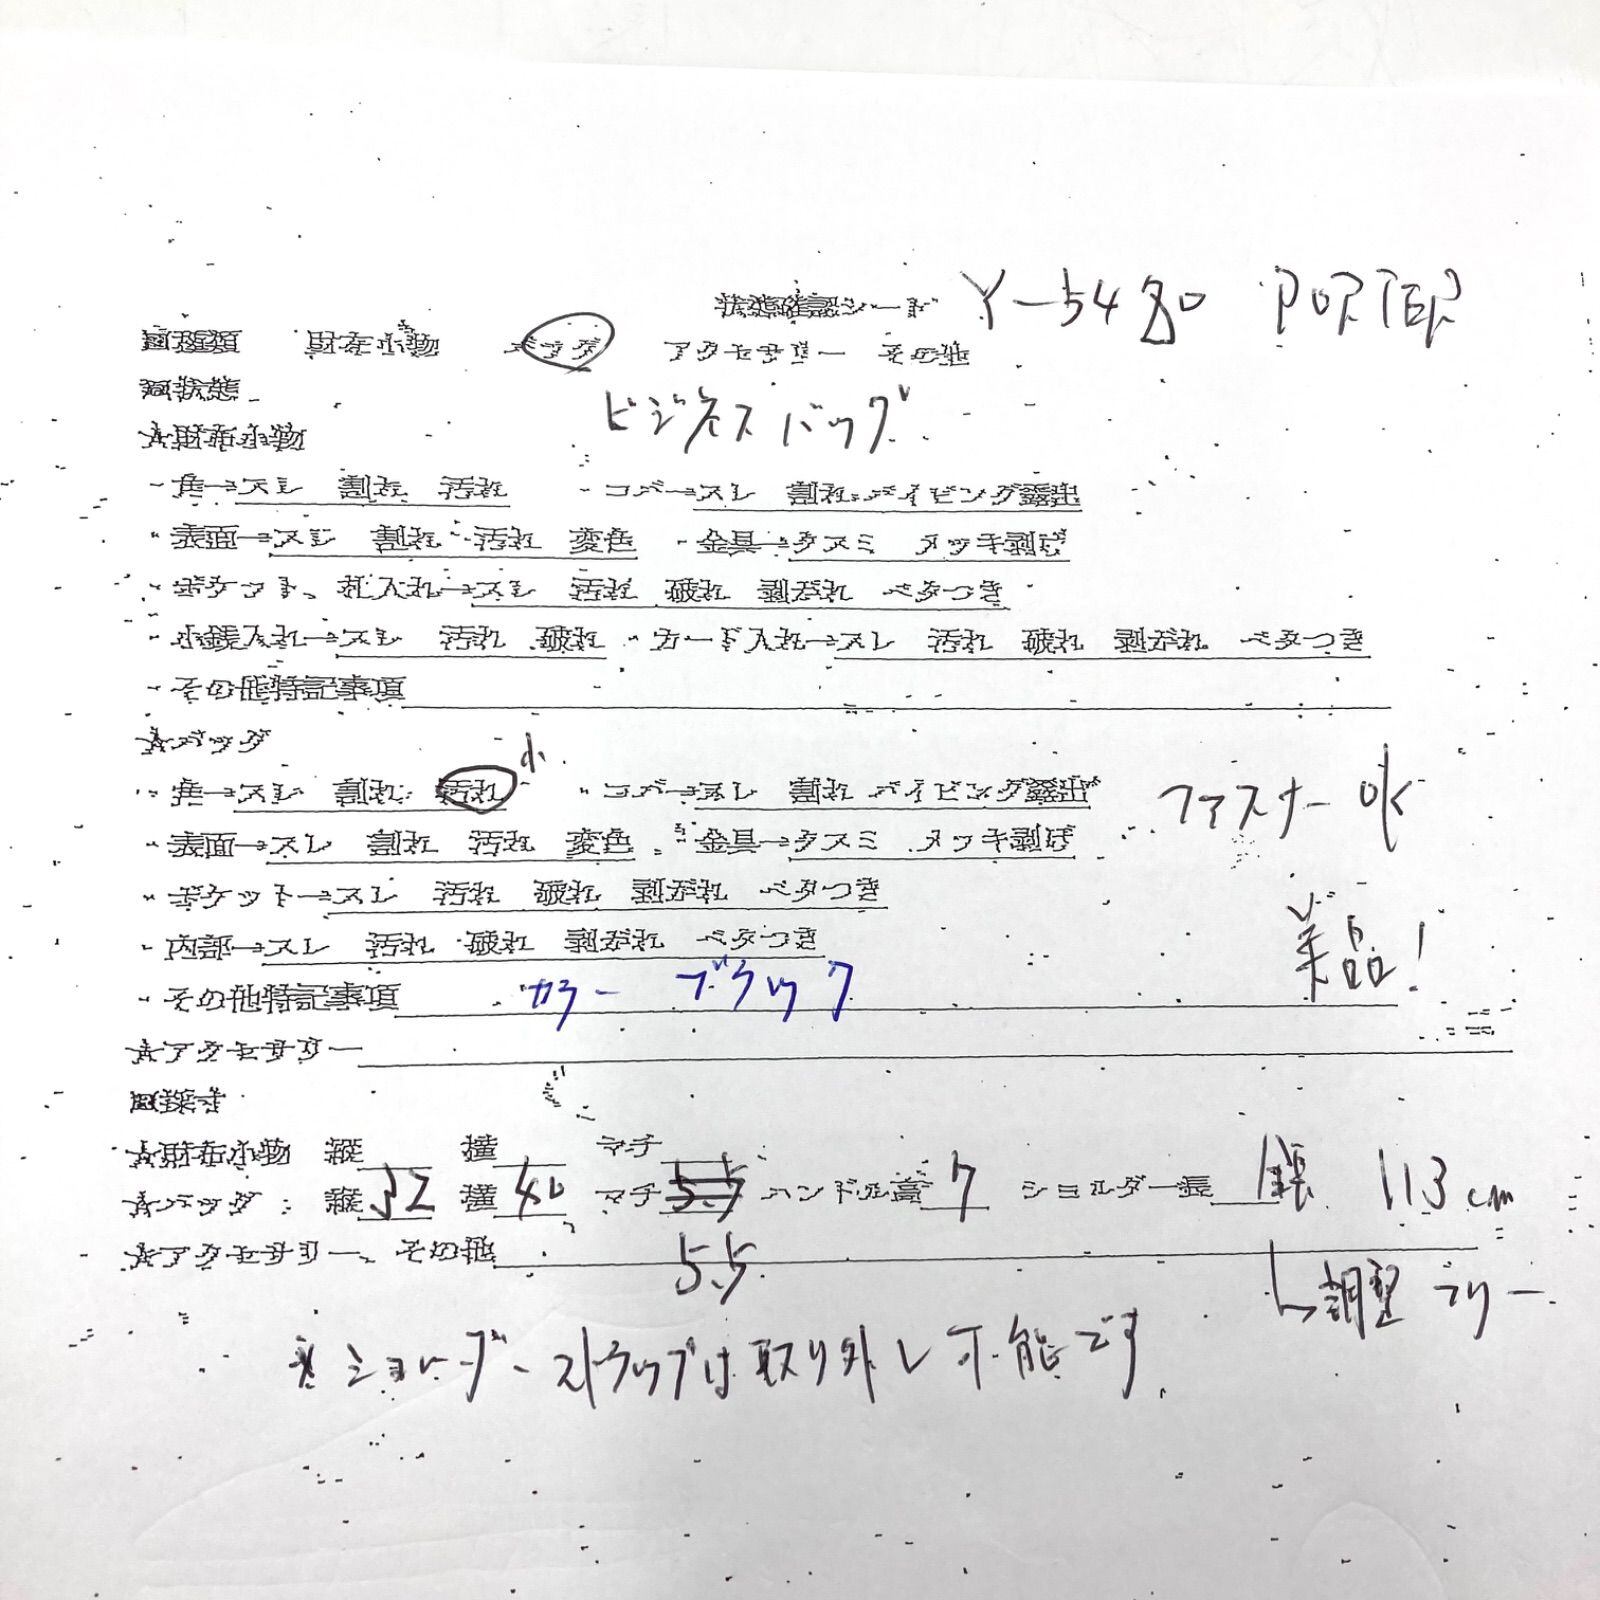 状態確認シート Y-5480 PORTER
□種類 財布小物 バッグ アクセサリー その他
□状態 ビジネスバッグ
☆財布小物
・角→スレ 割れ 汚れ ・コバ→スレ 割れ パイピング露出
・表面→スレ 割れ 汚れ 変色 ・金具→クスミ メッキ剥げ
・ポケット、札入れ→スレ 汚れ 破れ 剥がれ ベタつき
・小銭入れ→スレ 汚れ 破れ ・カード入れ→スレ 汚れ 破れ 剥がれ ベタつき
・その他特記事項
☆バッグ 小
・角→スレ 割れ 汚れ ・コバ→スレ 割れ パイピング露出 ファスナー OK
・表面→スレ 割れ 汚れ 変色 ・金具→クスミ メッキ剥げ
・ポケット→スレ 汚れ 破れ 剥がれ ベタつき
・内部→スレ 汚れ 破れ 剥がれ ベタつき 美品!
・その他特記事項 カラー ブラック
☆アクセサリー
□採寸
☆財布小物 縦 横 マチ
☆バッグ:縦32 横40 マチ5.5 ハンドル高7 ショルダー長 113cm
☆アクセサリー、その他 5.5 調整フリー
※ショルダーストラップは取り外し可能です